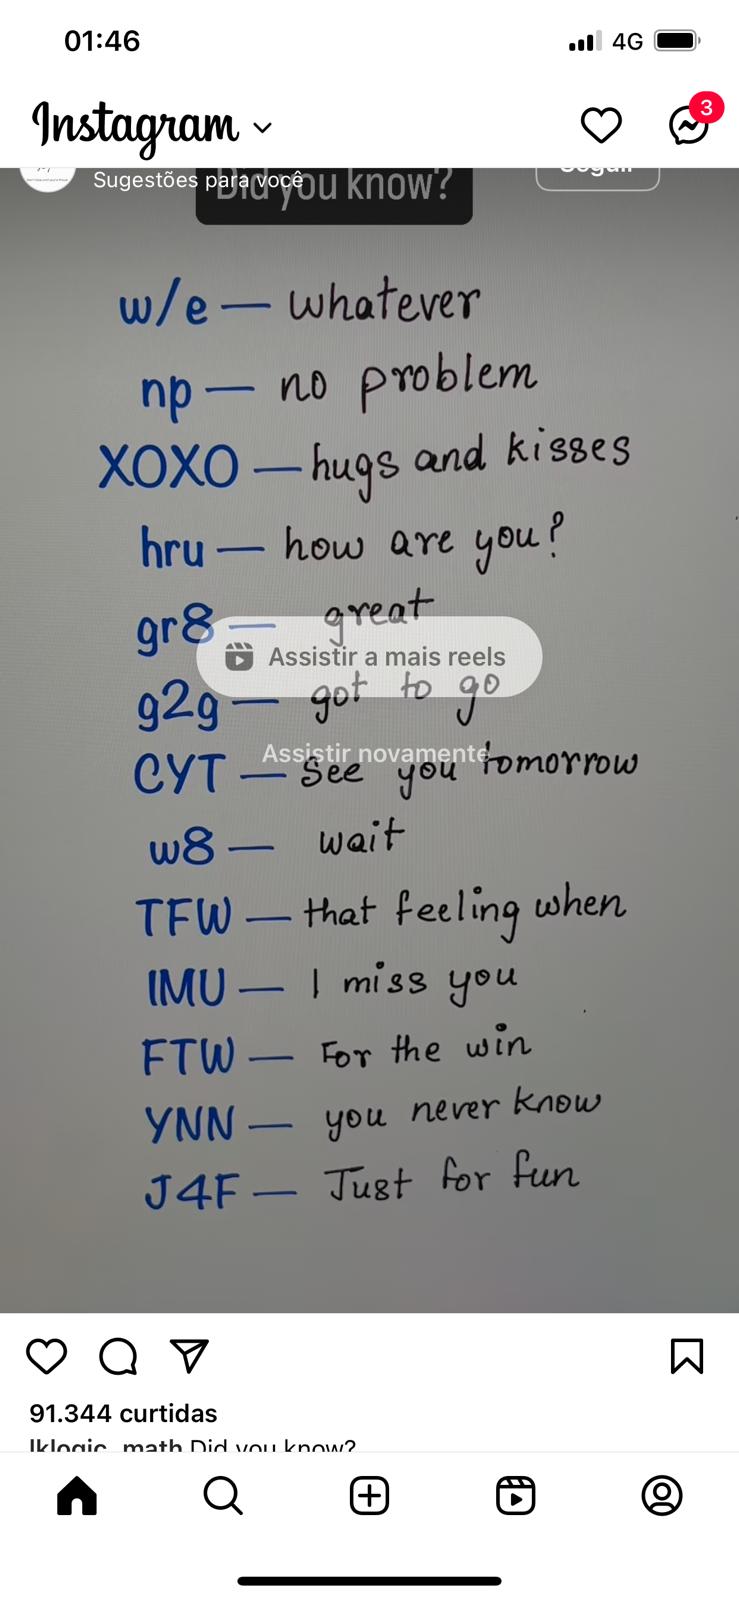 01:46
4G
Instagram
3
Sugestões para você
Did you know?
Seguir
w/e — whatever
np — no problem
XOXO — hugs and kisses
hru — how are you?
gr8 — great
Assistir a mais reels
g2g — got to go
Assistir novamente
CYT — See you tomorrow
w8 — wait
TFW — that feeling when
IMU — I miss you
FTW — For the win
YNN — you never know
J4F — Just for fun
91.344 curtidas
lklogic_math Did you know?